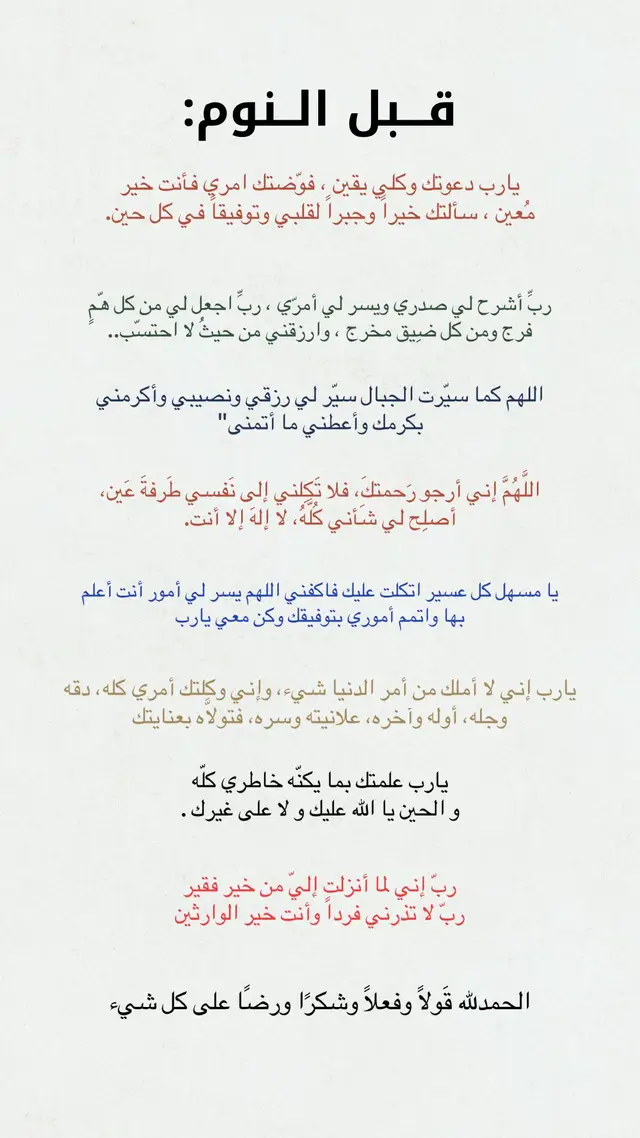 قـبل الـنوم:
يارب دعوتك وكلي يقين ، فوّضتك امري فأنت خير
مُعين ، سألتك خيراً وجبراً لقلبي وتوفيقاً في كل حين.
ربِّ أشرح لي صدري ويسر لي أمرّي ، ربِّ اجعل لي من كل هّمٍ
فرج ومن كل ضِيق مخرج ، وارزقني من حيثُ لا احتسّب..
اللهم كما سيّرت الجبال سيّر لي رزقي ونصيبي وأكرمني
بكرمك وأعطني ما أتمنى"
اللَّهُمَّ إني أرجو رَحمتكَ، فلا تَكِلني إلى نَفسي طَرفةَ عَين،
أصلِح لي شَأني كُلَّهُ، لا إلهَ إلا أنت.
يا مسهل كل عسير اتكلت عليك فاكفني اللهم يسر لي أمور أنت أعلم
بها واتمم أموري بتوفيقك وكن معي يارب
يارب إني لا أملك من أمر الدنيا شيء، وإني وكلتك أمري كله، دقه
وجله، أوله وآخره، علانيته وسره، فتولاَّه بعنايتك
يارب علمتك بما يكنّه خاطري كلّه
و الحين يا الله عليك و لا على غيرك .
ربّ إني لما أنزلت إليّ من خير فقير
ربّ لا تذرني فرداً وأنت خير الوارثين
الحمدلله قَولاً وفعلاً وشكرًا ورضًا على كل شيء